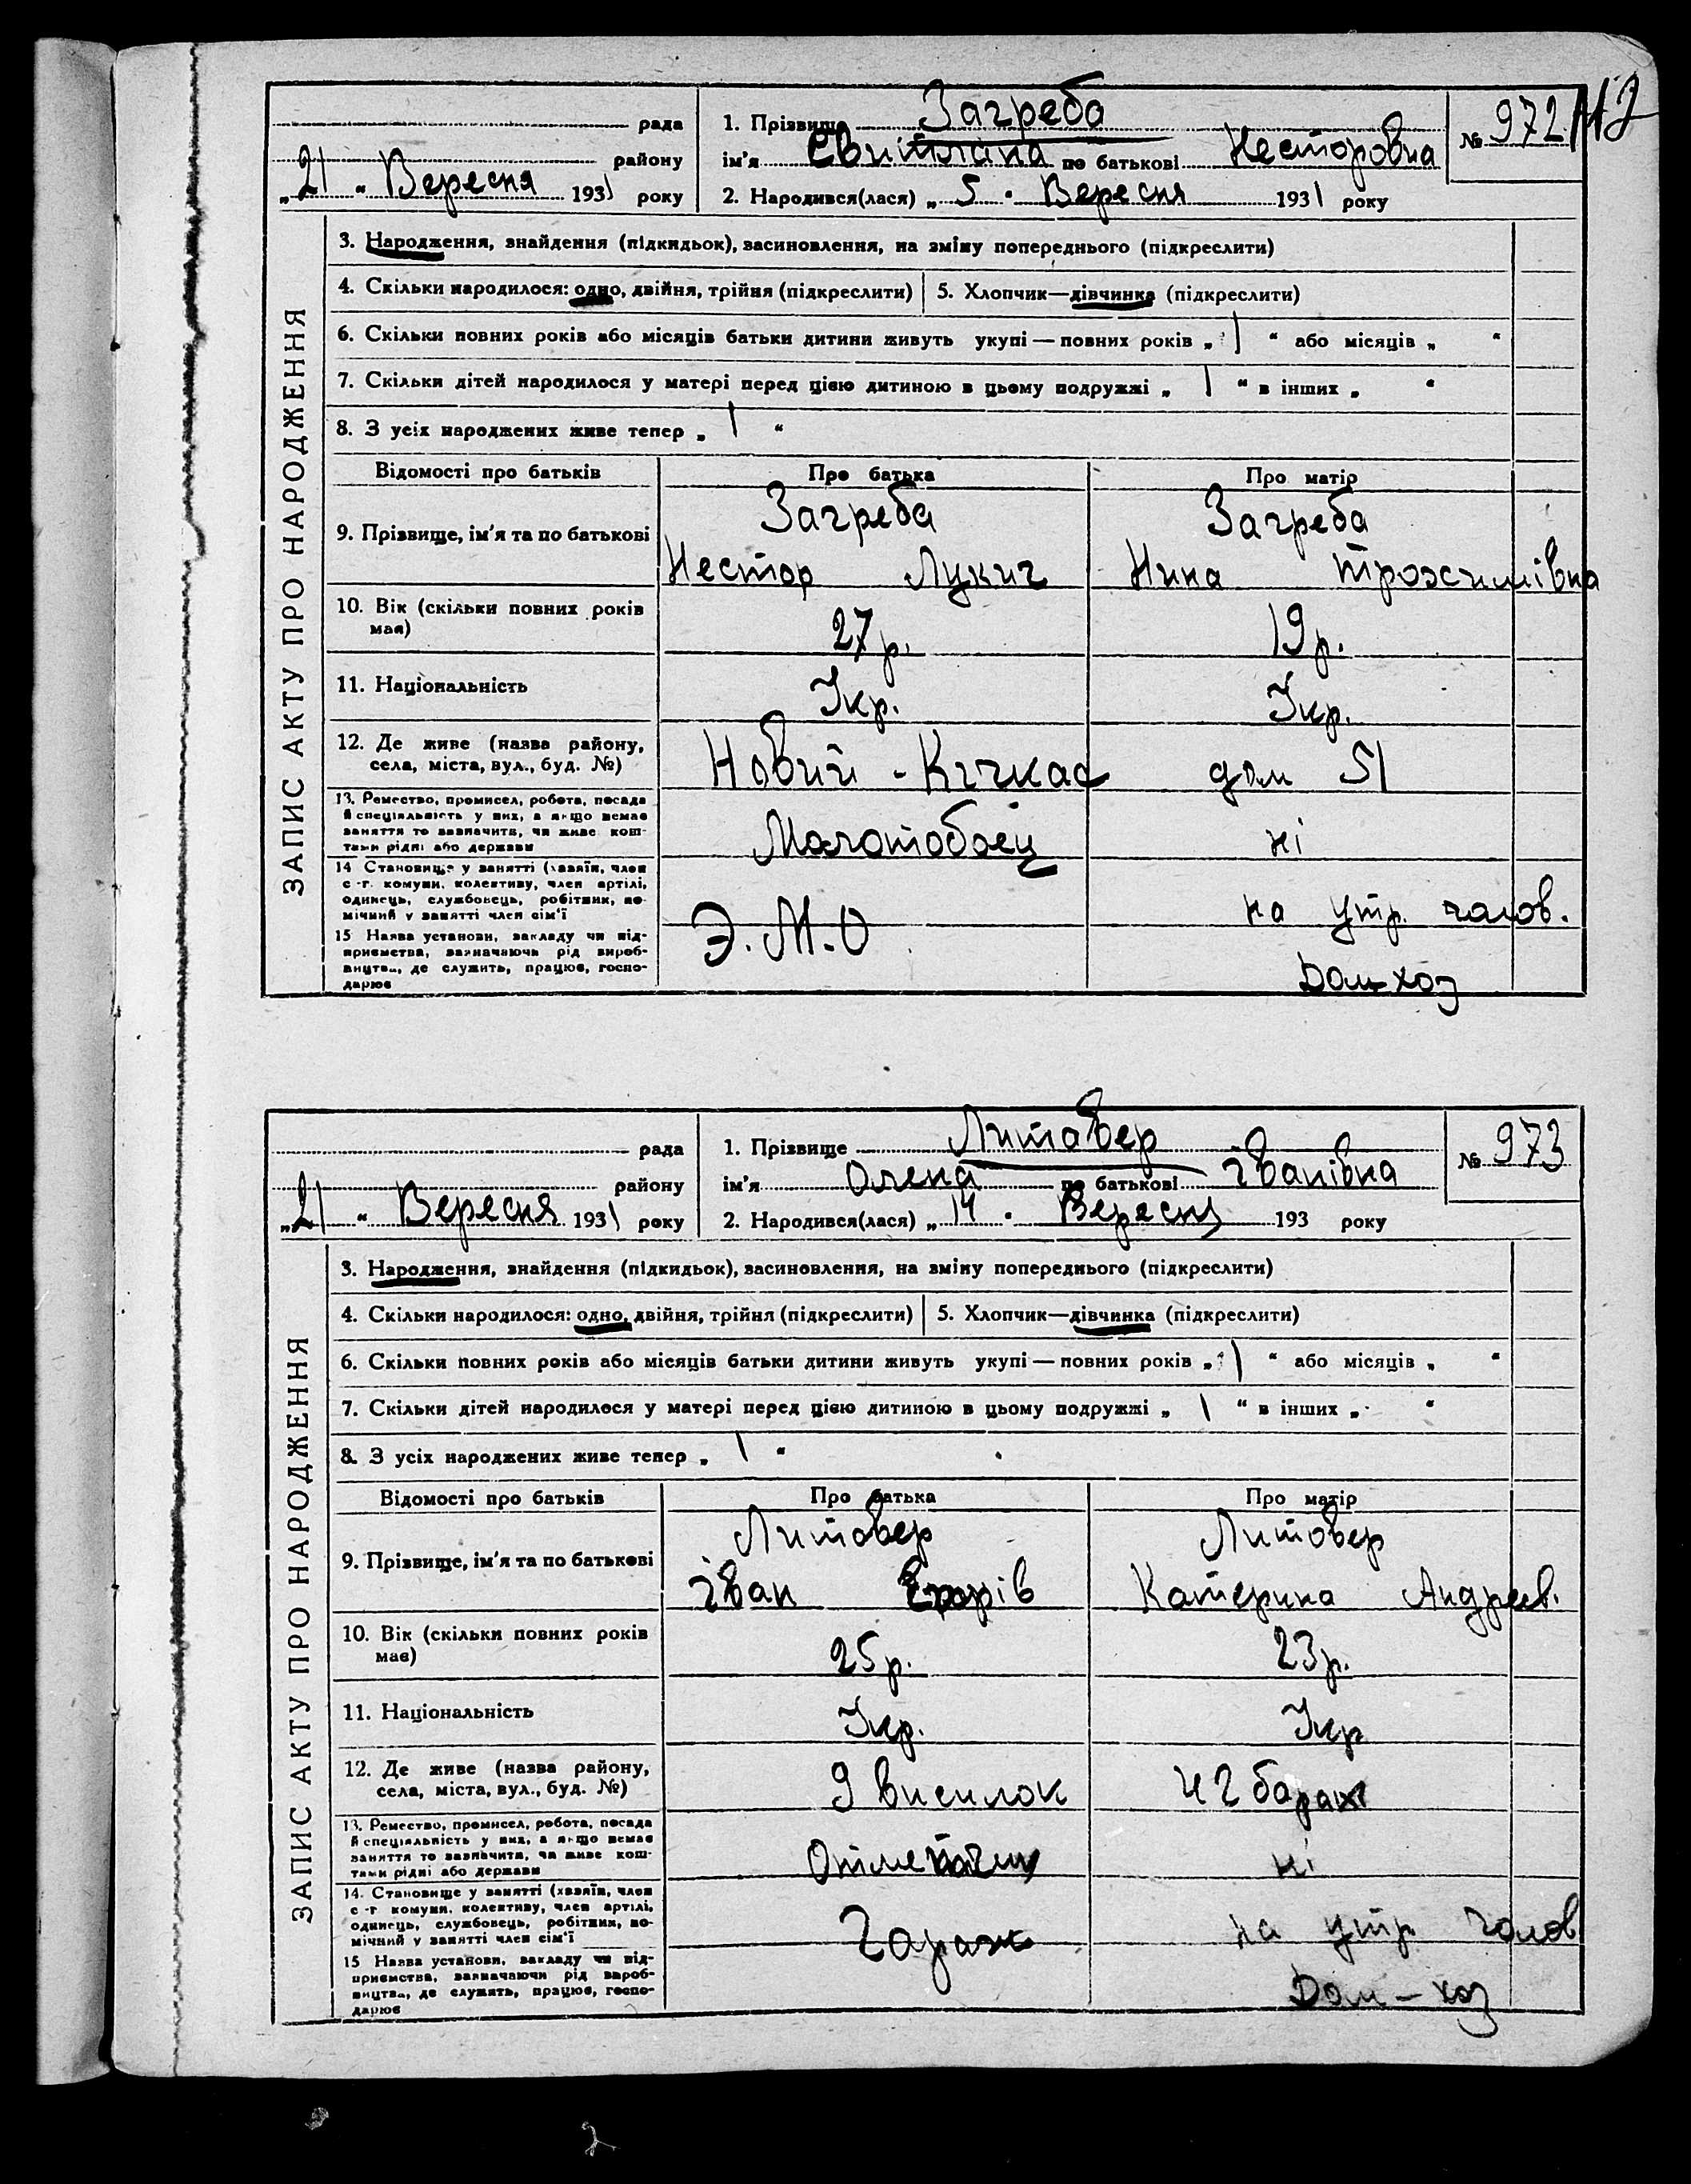 112
рада
району
„21“ Вересня 1931 року
1. Прізвище Загреба
ім'я Євитлана по батькові Несторовна
2. Народився(лася) „5“ Вересня 1931 року
№ 972
ЗАПИС АКТУ ПРО НАРОДЖЕННЯ
3. Народження, знайдення (підкидьок), засиновлення, на зміну попереднього (підкреслити)
4. Скільки народилося: одно, двійня, трійня (підкреслити) 5. Хлопчик—дівчинка (підкреслити)
6. Скільки повних років або місяців батьки дитини живуть укупі — повних років „1“ або місяців „ “
7. Скільки дітей народилося у матері перед цією дитиною в цьому подружжі „1“ в інших „ “
8. З усіх народжених живе тепер „1“
Відомості про батьків Про батька Про матір
9. Прізвище, ім'я та по батькові Загреба Загреба
Нестор Лукич Нина
10. Вік (скільки повних років має) 27 р. 19 р.
11. Національність Укр. Укр.
12. Де живе (назва району, села, міста, вул., буд. №) Новий - Кічкас дом 51
13. Ремество, промисел, робота, посада й спеціяльність у них, а якщо немає заняття то зазначити, чи живе коштами рідні або держави Молотобоец ні
14 Становище у занятті (хазяїн, член с.-г. комуни, колективу, член артілі, одинець, службовець, робітник, помічний у занятті член сім'ї на утр. чолов.
15 Назва установи, закладу чи підприємства, зазначаючи рід виробництва, де служить, працює, господарює Э.М.О Дом-хоз
рада
району
„21“ Вересня 1931 року
1. Прізвище Литовер
ім'я Олена по батькові Іванівна
2. Народився(лася) „14“ Вересня 193 року
№ 973
ЗАПИС АКТУ ПРО НАРОДЖЕННЯ
3. Народження, знайдення (підкидьок), засиновлення, на зміну попереднього (підкреслити)
4. Скільки народилося: одно, двійня, трійня (підкреслити) 5. Хлопчик—дівчинка (підкреслити)
6. Скільки повних років або місяців батьки дитини живуть укупі — повних років „1“ або місяців „ “
7. Скільки дітей народилося у матері перед цією дитиною в цьому подружжі „1“ в інших „ “
8. З усіх народжених живе тепер „1“
Відомості про батьків Про батька Про матір
9. Прізвище, ім'я та по батькові Литовер Литовер
Іван Катерина Андреев.
10. Вік (скільки повних років має) 25 р. 23 р.
11. Національність Укр. Укр
12. Де живе (назва району, села, міста, вул., буд. №) 9 виселок 42 барак
13. Ремество, промисел, робота, посада й спеціяльність у них, а якщо немає заняття то зазначити, чи живе коштами рідні або держави ні
14. Становище у занятті (хазяїн, член с.-г комуни, колективу, член артілі, одинець, службовець, робітник, помічний у занятті член сім'ї на утр. чолов
15 Назва установи, закладу чи підприємства, зазначаючи рід виробництва, де служить, працює, господарює Гараж Дом-хоз
2